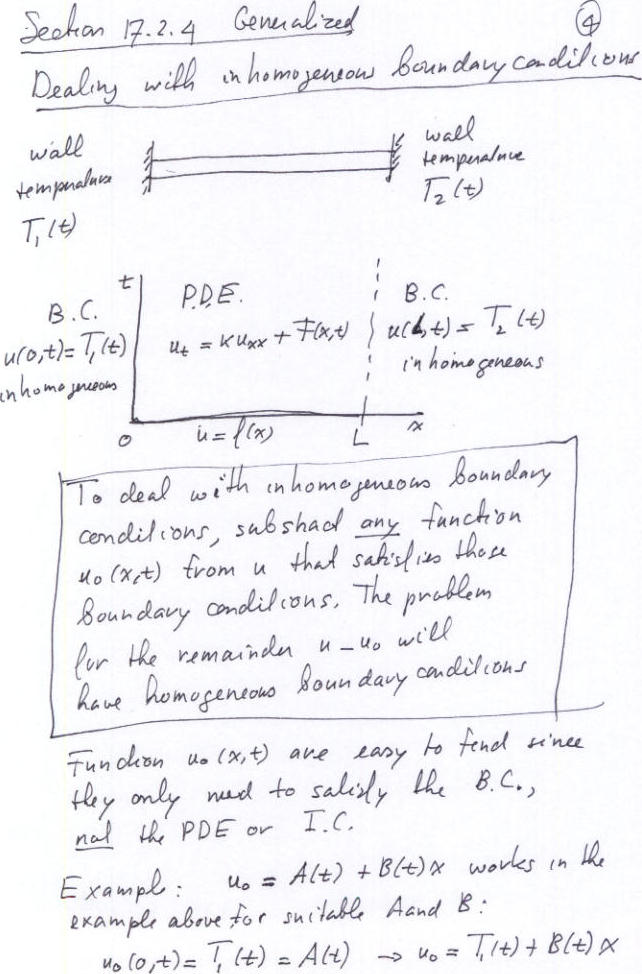 Section 17.2.4 Generalized ④
Dealing with inhomogeneous boundary conditions
wall
temperature
T₁(t)
wall
temperature
T₂(t)
t
B.C.
u(0,t)=T₁(t)
inhomogeneous
P.D.E.
uₜ = κuₓₓ + F(x,t)
B.C.
u(L,t) = T₂(t)
inhomogeneous
0 u = f(x) L x
To deal with inhomogeneous boundary
conditions, substract any function
u₀(x,t) from u that satisfies those
boundary conditions. The problem
for the remainder u - u₀ will
have homogeneous boundary conditions
Function u₀(x,t) are easy to find since
they only need to satisfy the B.C.,
not the PDE or I.C.
Example: u₀ = A(t) + B(t)x works in the
example above for suitable A and B:
u₀(0,t) = T₁(t) = A(t) → u₀ = T₁(t) + B(t)x